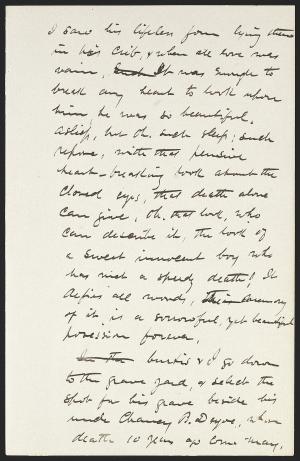 I saw his lifeless form lying there
in his crib, & when all love was
vain, Such It was enough to
break any heart to look upon
him, he was so beautiful,
asleep, but Oh. such sleep; such
repose, with that pensive
heart-breaking look about the
closed eyes, that death alone
can give, Oh, that look, who
can describe it, the look of
a sweet innocent boy who
has met a speedy death! It
defies all words, memory
of it is a sorrowful, yet beautiful
possession forever.
In the & I go down
to the grave yard, & select the
spot for his grave beside his
uncle Chauncy B. whose
death 10 years ago come May,